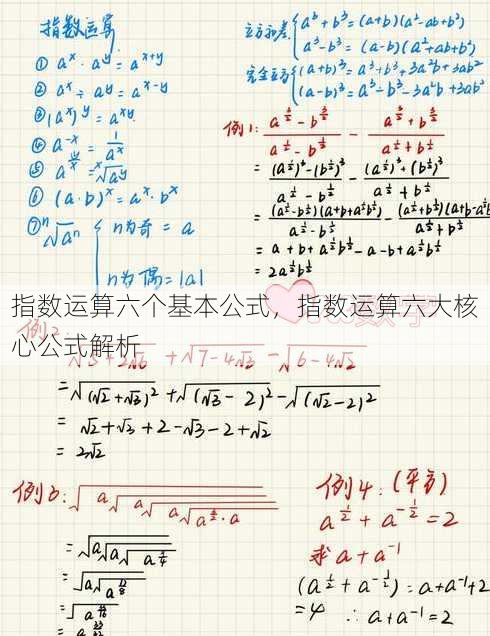 指数运算
① aˣ · aʸ = aˣ⁺ʸ
② aˣ ÷ aʸ = aˣ⁻ʸ
③ (aˣ)ʸ = aˣʸ
④ a⁻ˣ = 1/aˣ
⑤ a^(y/x) = ˣ√aʸ
⑥ (a·b)ˣ = aˣ·bˣ
⑦ ⁿ√aⁿ { n为奇 = a
n为偶 = |a|
立方和差 { a³+b³ = (a+b)(a²-ab+b²)
a³-b³ = (a-b)(a²+ab+b²)
完全立方 { (a+b)³ = a³+b³+3a²b+3ab²
(a-b)³ = a³-b³-3a²b+3ab²
例1: (a^(3/2) - b^(3/2))/(a^(1/2) - b^(1/2)) - (a^(3/2) + b^(3/2))/(a^(1/2) + b^(1/2))
= ((a^(1/2))³-(b^(1/2))³)/(a^(1/2) - b^(1/2)) - ((a^(1/2))³+(b^(1/2))³)/(a^(1/2) + b^(1/2))
= (a^(1/2)-b^(1/2))(a+b+a^(1/2)b^(1/2))/(a^(1/2)-b^(1/2)) - (a^(1/2)+b^(1/2))(a+b-a^(1/2)b
= a+b+a^(1/2)b^(1/2)-a-b+a^(1/2)b^(1/2)
= 2a^(1/2)b^(1/2)
指数运算六个基本公式，指数运算六大核
心公式解析
例2:
√5+2√6 + √7-4√3 - √6-4√2
= √(√2+√3)² + √(√3-2)² - √(√2-2)²
= √2+√3+2-√3-2+√2
= 2√2
例3: √a√a√a√a^(1/2)·a
= √a√a√a
= √a√a
= √a
例4: (平方)
a^(1/2) + a^(-1/2) = 2
求 a+a⁻¹
(a^(1/2) + a^(-1/2)): a+a⁻¹+2
=4 ∴ a+a⁻¹=2